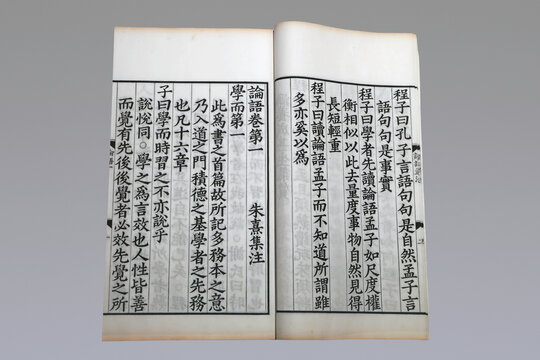 程子曰孔子言語句句是自然孟子言
語句句是事實
程子曰學者先讀論語孟子如尺度權
衡相似以此去量度事物自然見得
長短輕重
程子曰讀論語孟子而不知道所謂雖
多亦奚以為
論語卷第一 朱熹集注
學而第一
此為書之首篇故所記多務本之意
乃入道之門積德之基學者之先務
也凡十六章
子曰學而時習之不亦說乎
說悅同○學之為言效也人性皆善
而覺有先後後覺者必效先覺之所